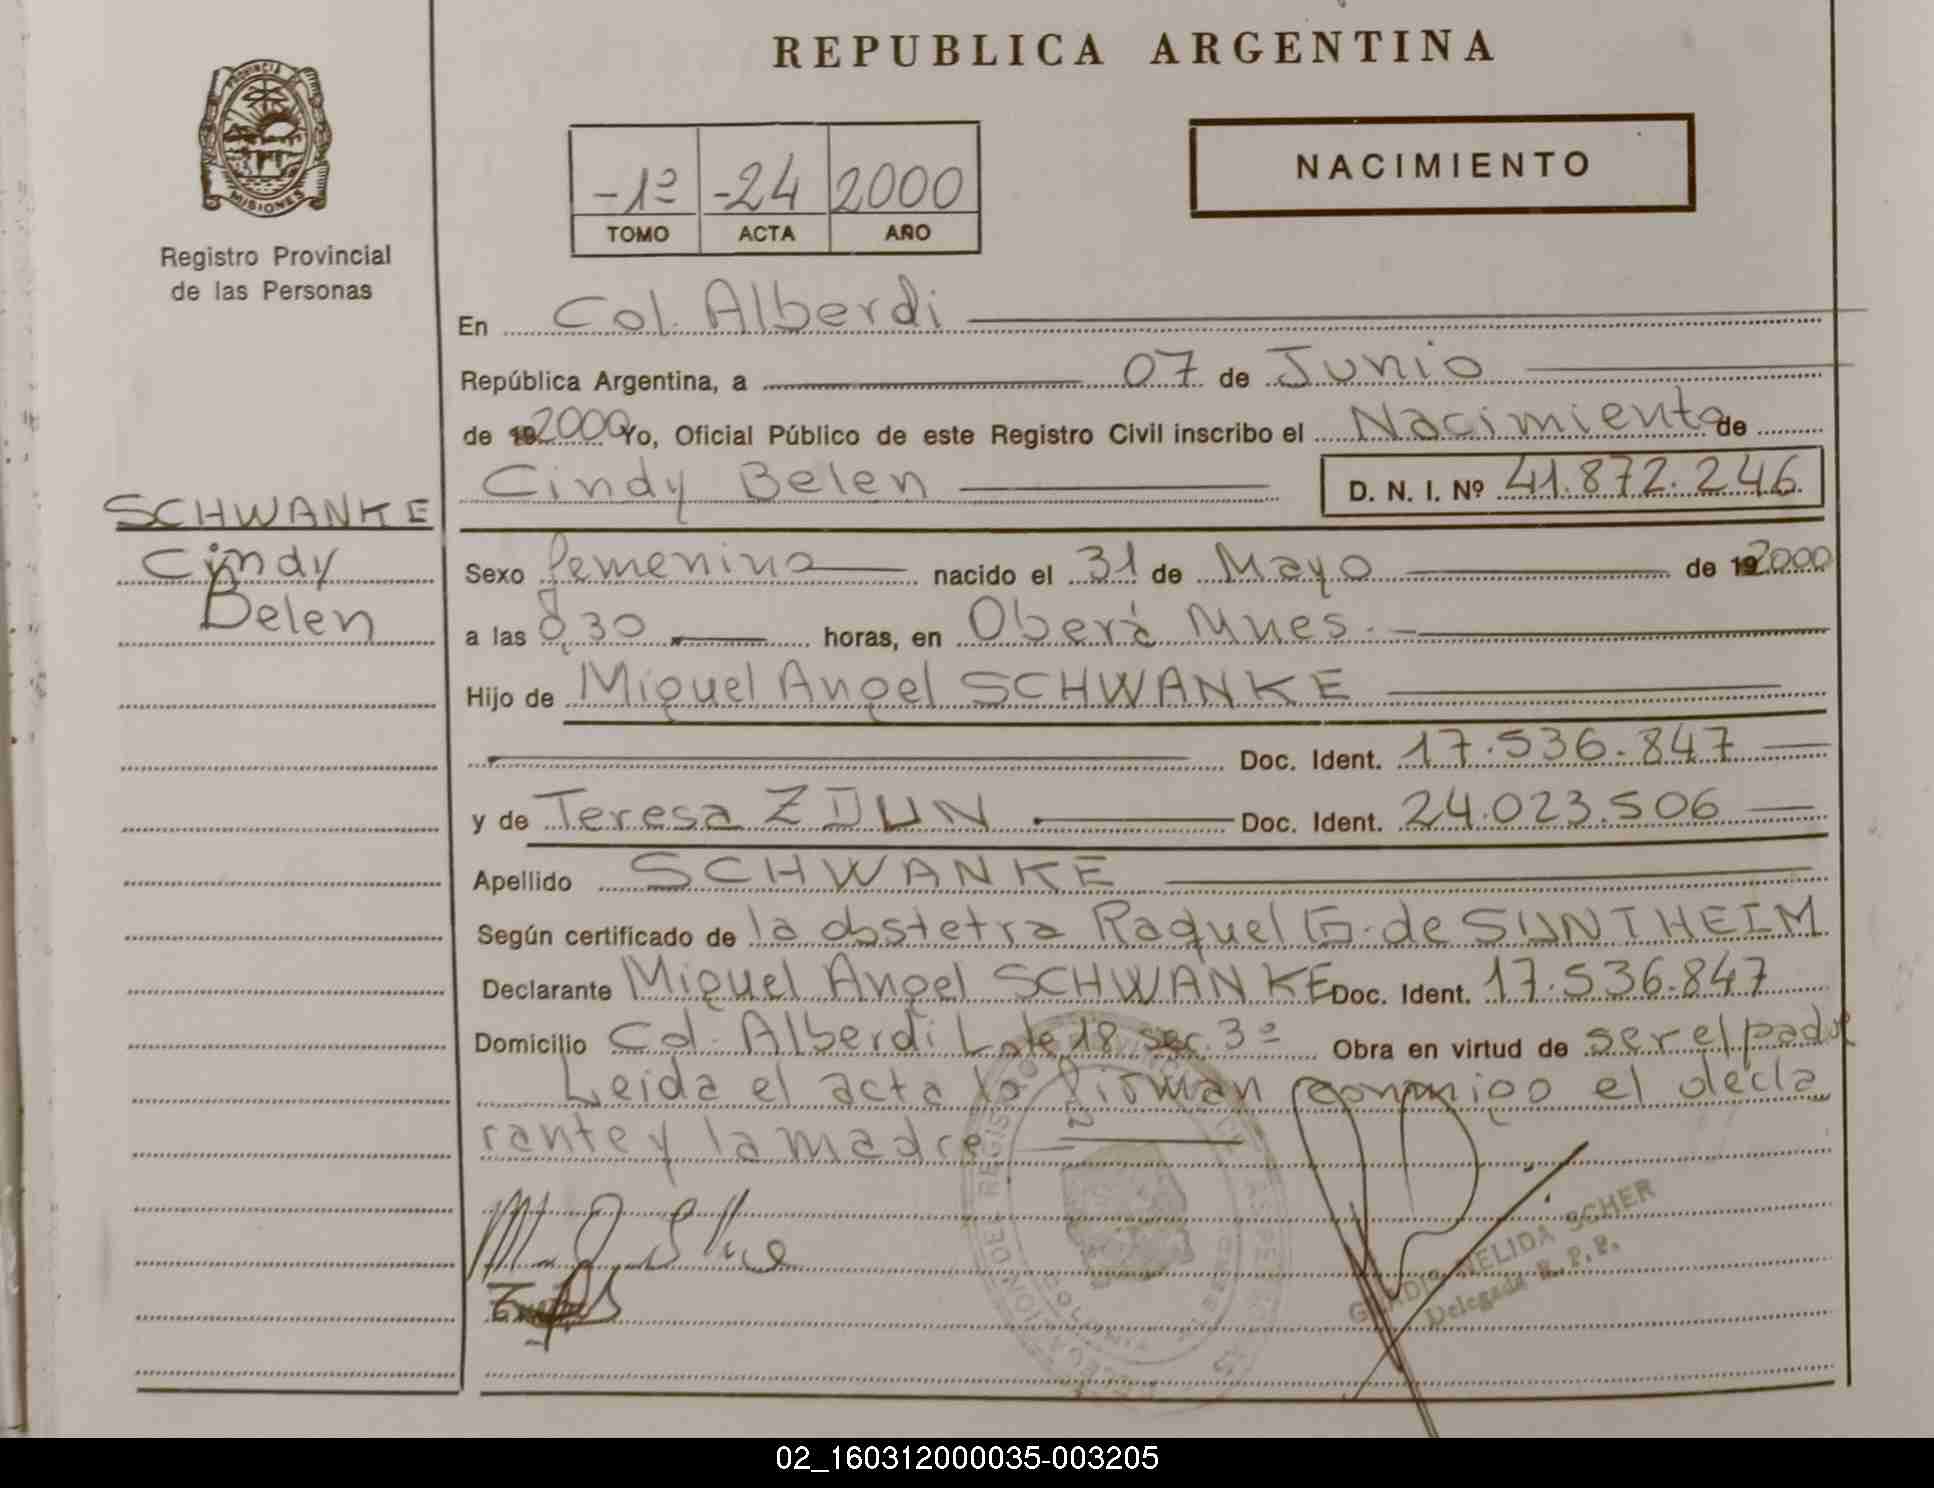 REPUBLICA ARGENTINA
PROVINCIA DE
MISIONES
Registro Provincial
de las Personas
-1º -24 2000
TOMO ACTA AÑO
NACIMIENTO
En Col. Alberdi
República Argentina, a 07 de Junio
de 19 2000 Yo, Oficial Público de este Registro Civil inscribo el Nacimiento de
Cindy Belen D. N. I. Nº 41.872.246
SCHWANKE
Cindy
Belen
Sexo femenino nacido el 31 de Mayo de 19 2000
a las 8,30 horas, en Oberá Mnes.
Hijo de Miguel Angel SCHWANKE
Doc. Ident. 17.536.847
y de Teresa ZDUN Doc. Ident. 24.023.506
Apellido SCHWANKE
Según certificado de la obstetra Raquel G. de SUNTHEIM
Declarante Miguel Angel SCHWANKE Doc. Ident. 17.536.847
Domicilio Col. Alberdi Lote 18 sec. 3º Obra en virtud de ser el padre
Leida el acta la firman conmigo el decla
rante y la madre
NELIDA SCHER
Delegada R. P. P.
02_160312000035-003205